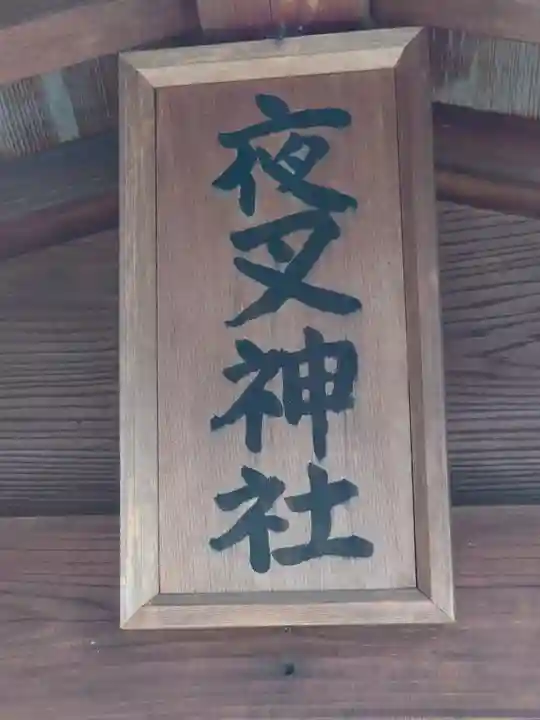 夜叉神社